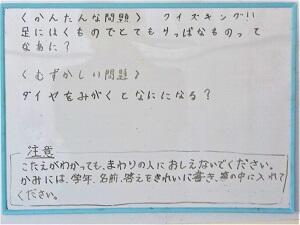 〈かんたんな問題〉 クイズキング!!
足にはくものでとてもりっぱなものって
なあに?
〈むずかしい問題〉
ダイヤをみがくとなにになる?
注意
こたえがわかっても、まわりの人におしえないでください。
かみには、学年、名前、答えをきれいに書き、箱の中に入れて
ください。